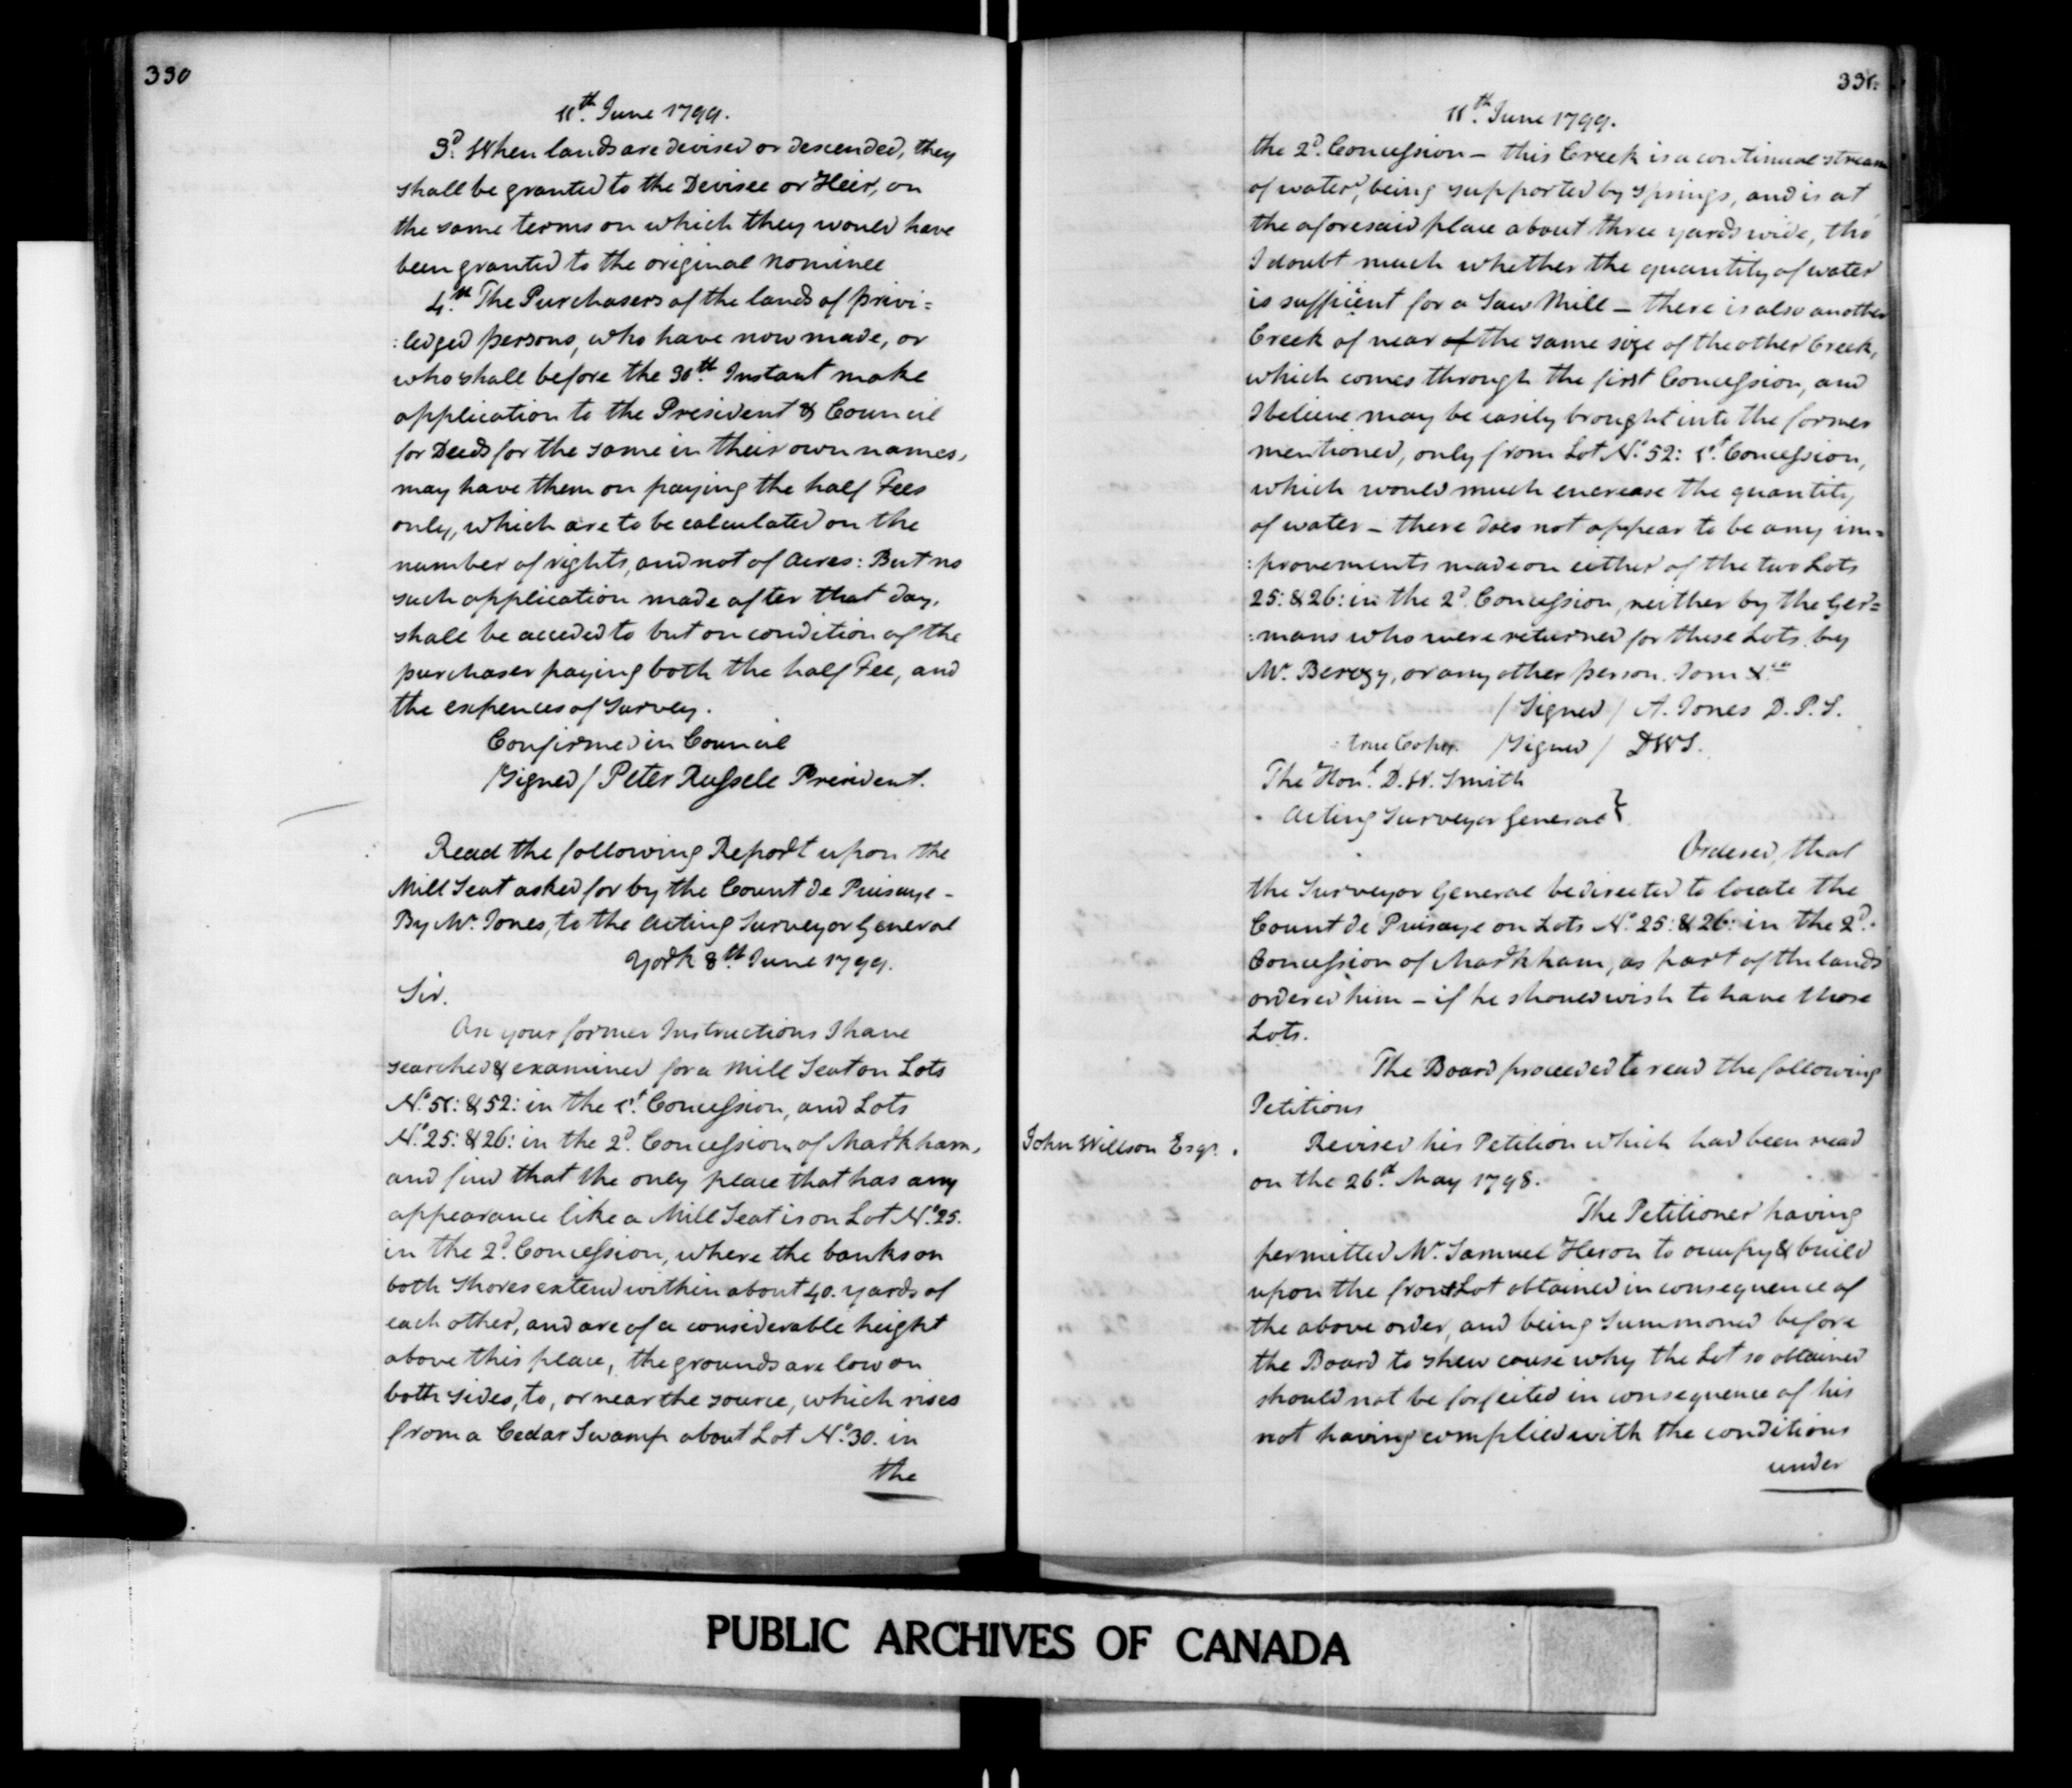 330
11th. June 1799.
3d. When lands are devised or descended, they
shall be granted to the Devisee or Heir, on
the same terms on which they would have
been granted to the original Nominee
4th. The Purchasers of the lands of privi=
:ledged persons, who have now made, or
who shall before the 30th. Instant make
application to the President & Council
for Deeds for the same in their own names,
may have them on paying the half Fees
only, which are to be calculated on the
number of rights, and not of Acres: But no
such application made after that day,
shall be acceded to but on condition of the
purchaser paying both the half Fee, and
the expences of Survey.
Confirmed in Council
/Signed/ Peter Russell President.
Read the following Report upon the
Mill Seat asked for by the Count de Puisaye -
By Mr. Jones, to the Acting Surveyor General
York 8th. June 1799.
Sir.
As your former Instructions I have
searched & examined for a Mill Seat on Lots
No. 51: & 52: in the 1st. Concession, and Lots
No. 25: & 26: in the 2d. Concession of Markham,
and find that the only place that has any
appearance like a Mill Seat is on Lot No. 25.
in the 2d. Concession, where the banks on
both Shores extend within about 40. yards of
each other, and are of a considerable height
above this place, the grounds are low on
both sides, to, or near the source, which rises
from a Cedar Swamp about Lot No. 30. in
the
331.
11th. June 1799.
the 2d. Concession - this Creek is a continual stream
of water, being supported by springs, and is at
the aforesaid place about three yards wide, tho'
I doubt much whether the quantity of water
is sufficient for a Saw Mill - there is also another
Creek of near of the same size of the other Creek,
which comes through the first Concession, and
I believe may be easily brought into the former
mentioned, only from Lot No. 52: 1st. Concession,
which would much encrease the quantity
of water - there does not appear to be any im=
:provements made on either of the two Lots
25: & 26: in the 2d. Concession, neither by the Ger=
:mans who were returned for these Lots by
Mr. Berczy, or any other person. I am &ca
/Signed/ A. Jones D. P. S.
true Copy. /Signed/ DWS.
The Honl. D. W. Smith
Acting Surveyor General }
Ordered, that
the Surveyor General be directed to locate the
Count de Puisaye on Lots No. 25: & 26: in the 2d.
Concession of Markham, as part of the lands
ordered him - if he should wish to have those
Lots.
The Board proceeded to read the following
Petitions
John Willson Esqr.
Revised his Petition which had been read
on the 26th. May 1798.
The Petitioner having
permitted Mr. Samuel Heron to occupy & build
upon the front Lot obtained in consequence of
the above order, and being Summoned before
the Board to shew cause why the Lot so obtained
should not be forfeited in consequence of his
not having complied with the conditions
under
PUBLIC ARCHIVES OF CANADA